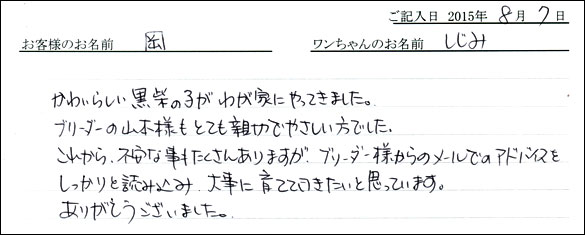 ご記入日 2015年 8月 7日
お客様のお名前 ワンちゃんのお名前 しじみ
かわいらしい黒柴の子がわが家にやってきました。
ブリーダーの山本様もとても親切でやさしい方でした。
これから、不安な事もたくさんありますが、ブリーダー様からのメールでのアドバイスを
しっかりと読み込み、大事に育てて行きたいと思っています。
ありがとうございました。